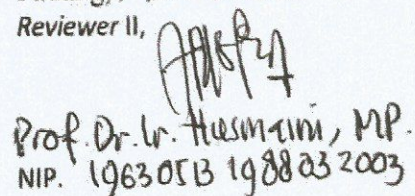 Reviewer II,
Prof. Dr. Ir. Husmaini, MP.
NIP. 19630513 198803 2003